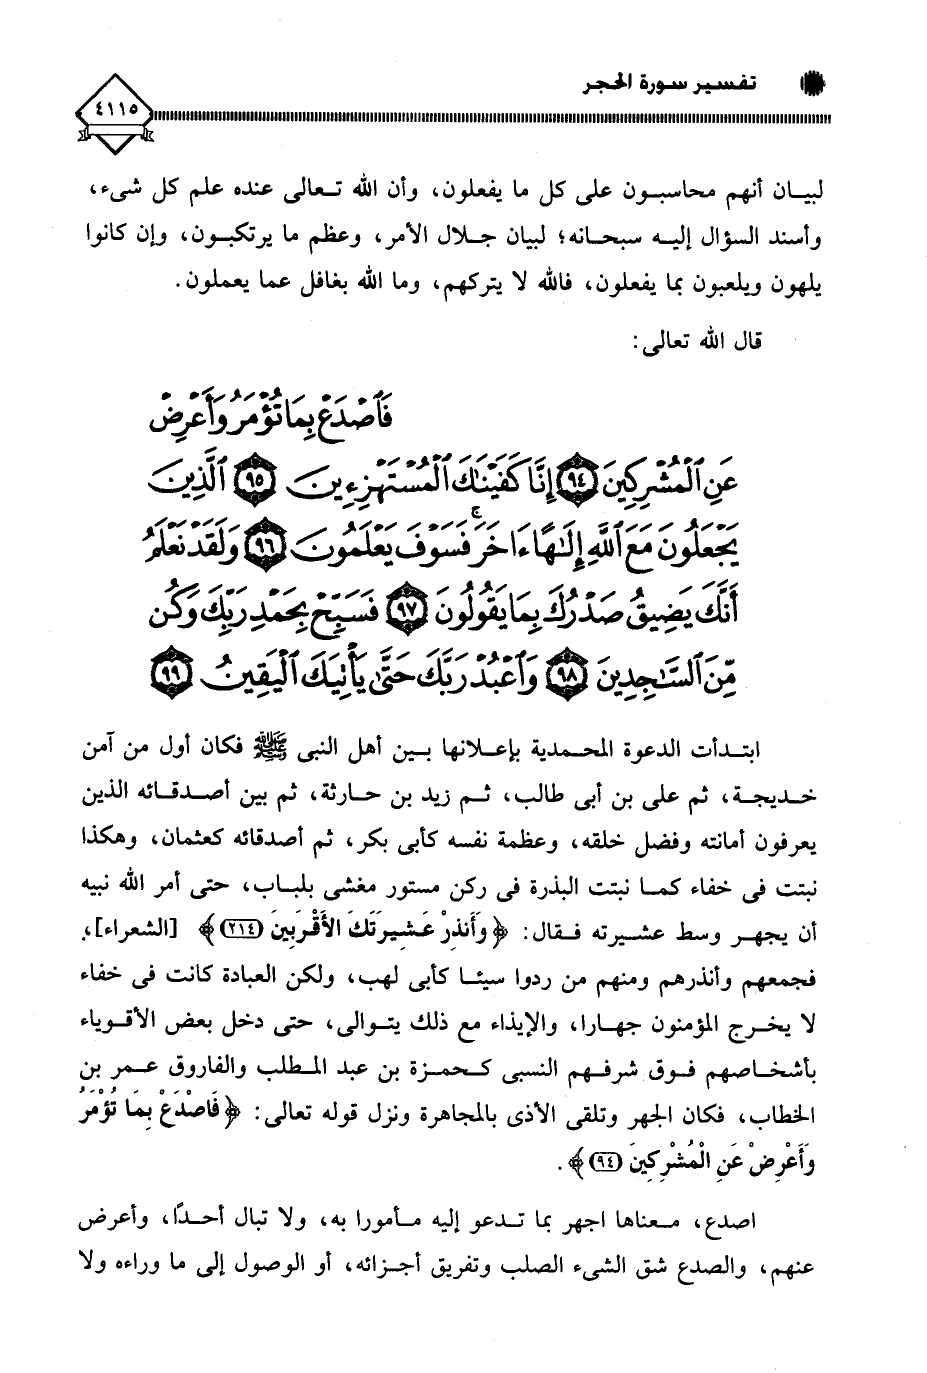 تفسير سورة الحجر
٤١١٥
لبيان أنهم محاسبون على كل ما يفعلون، وأن الله تعالى عنده علم كل شىء،
وأسند السؤال إليه سبحانه؛ لبيان جلال الأمر، وعظم ما يرتكبون، وإن كانوا
يلهون ويلعبون بما يفعلون، فالله لا يتركهم، وما الله بغافل عما يعملون.
قال الله تعالى:
فَٱصْدَعْ بِمَا تُؤْمَرُ وَأَعْرِضْ
عَنِ ٱلْمُشْرِكِينَ ٩٤ إِنَّا كَفَيْنَٰكَ ٱلْمُسْتَهْزِءِينَ ٩٥ ٱلَّذِينَ
يَجْعَلُونَ مَعَ ٱللَّهِ إِلَٰهًا ءَاخَرَ ۚ فَسَوْفَ يَعْلَمُونَ ٩٦ وَلَقَدْ نَعْلَمُ
أَنَّكَ يَضِيقُ صَدْرُكَ بِمَا يَقُولُونَ ٩٧ فَسَبِّحْ بِحَمْدِ رَبِّكَ وَكُن
مِّنَ ٱلسَّٰجِدِينَ ٩٨ وَٱعْبُدْ رَبَّكَ حَتَّىٰ يَأْتِيَكَ ٱلْيَقِينُ ٩٩
ابتدأت الدعوة المحمدية بإعلانها بين أهل النبى ﷺ فكان أول من آمن
خديجة، ثم على بن أبى طالب، ثم زيد بن حارثة، ثم بين أصدقائه الذين
يعرفون أمانته وفضل خلقه، وعظمة نفسه كأبى بكر، ثم أصدقائه كعثمان، وهكذا
نبتت فى خفاء كما نبتت البذرة فى ركن مستور مغشى بلباب، حتى أمر الله نبيه
أن يجهر وسط عشيرته فقال: ﴿ وَأَنذِرْ عَشِيرَتَكَ الأَقْرَبِينَ (٢١٤) ﴾ [الشعراء]،
فجمعهم وأنذرهم ومنهم من ردوا سيئا كأبى لهب، ولكن العبادة كانت فى خفاء
لا يخرج المؤمنون جهارا، والإيذاء مع ذلك يتوالى، حتى دخل بعض الأقوياء
بأشخاصهم فوق شرفهم النسبى كحمزة بن عبد المطلب والفاروق عمر بن
الخطاب، فكان الجهر وتلقى الأذى بالمجاهرة ونزل قوله تعالى: ﴿ فَاصْدَعْ بِمَا تُؤْمَرُ
وَأَعْرِضْ عَنِ الْمُشْرِكِينَ (٩٤) ﴾ .
اصدع، معناها اجهر بما تدعو إليه مأمورا به، ولا تبال أحدًا، وأعرض
عنهم، والصدع شق الشىء الصلب وتفريق أجزائه، أو الوصول إلى ما وراءه ولا